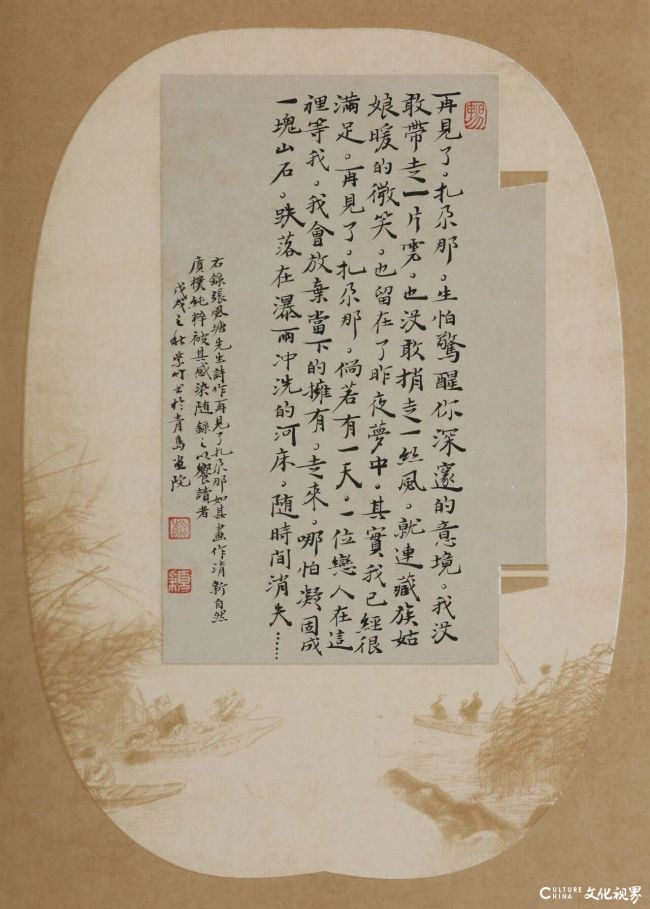 再見了。扎尕那。生怕驚醒你深邃的意境。我沒
敢帶走一片雲。也沒敢捎走一丝風。就連藏族姑
娘暖的微笑。也留在了昨夜夢中。其實我已經很
滿足。再見了。扎尕那。倘若有一天。一位戀人在這
裡等我。我會放棄當下的擁有。走來。哪怕凝固成
一塊山石。跌落在瀑雨冲洗的河床。随時間消失……
右錄張風塘先生詩作再見了扎尕那如其畫作清新自然
質樸純粹被其感染随錄之以饗讀者
戊戌之秋 竹書於青島畫院
CULTURE
CHINA
文化视界